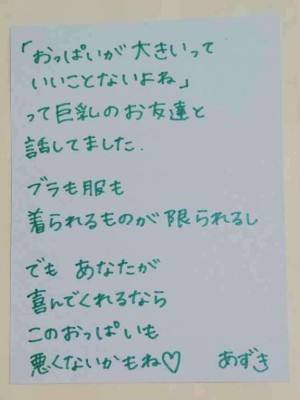 「おっぱいが大きいって
いいことないよね」
って巨乳のお友達と
話してました.
ブラも服も
着られるものが限られるし
でも あなたが
喜んでくれるなら
このおっぱいも
悪くないかもね♡ あずき